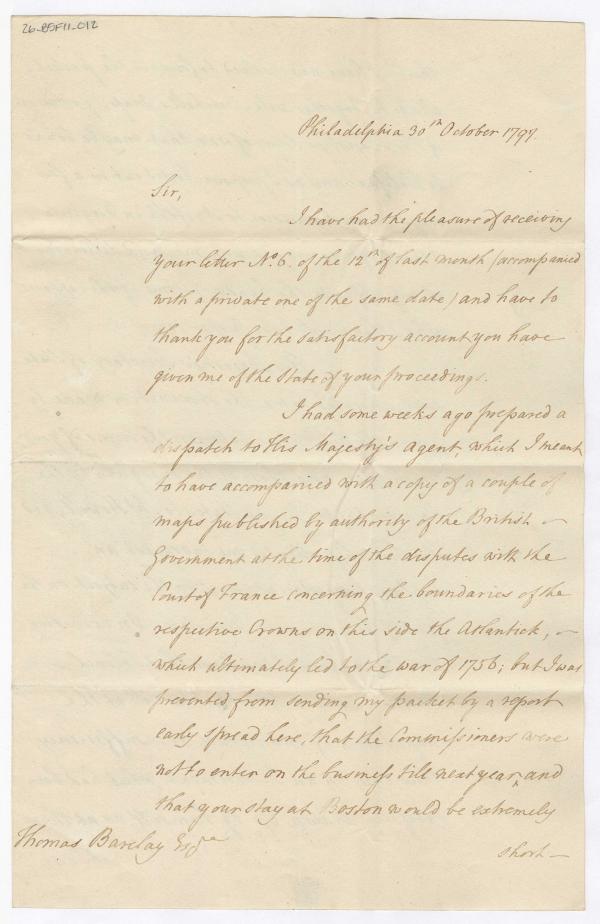 26-BSF11-012
Philadelphia 30th October 1797.
Sir,
I have had the pleasure of receiving
your letter No. 6. of the 12th of last month (accompanied
with a private one of the same date) and have to
thank you for the satisfactory account you have
given me of the State of your proceedings.
I had some weeks ago prepared a
dispatch to His Majesty's Agent, which I meant
to have accompanied with a copy of a couple of
maps published by authority of the British
Government at the time of the disputes with the
Court of France concerning the boundaries of the
respective Crowns on this side the Atlantick,
which ultimately led to the war of 1756; but I was
prevented from sending my packet by a report
early spread here, that the Commissioners were
not to enter on the business till next year, and
that your stay at Boston would be extremely
Thomas Barclay Esqre
short—